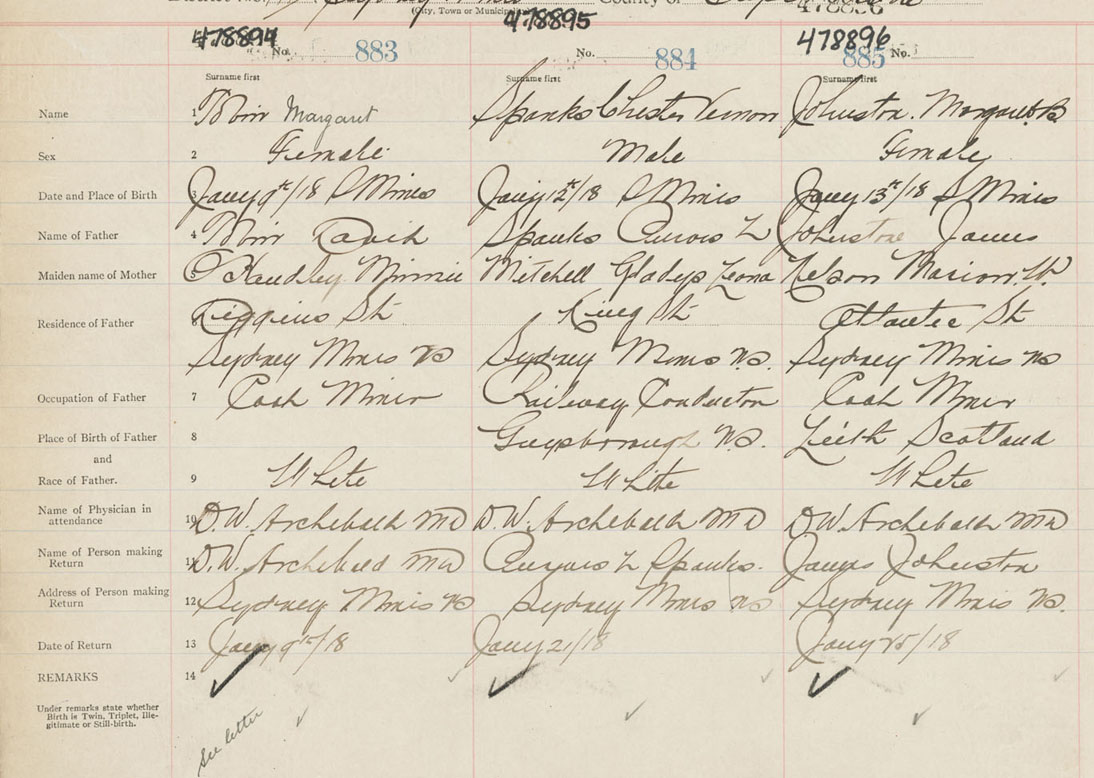 (City, Town or Municipality)
County of
478894 478895 478896
No. 883 No. 884 885 No.
Surname first Surname first Surname first
Name 1 Margaret Spanks Chester Vernon Johnston. Margaret B
Sex 2 Female Male Female
Date and Place of Birth 3 Jany 9th/18 S Mines Jany 12th/18 S Mines Jany 13th/18 S Mines
Name of Father 4 David Spanks L Johnstone James
Maiden name of Mother 5 Minnie Mitchell Gladys Leona Nelson Marion W.
Residence of Father 6 St King St Atlantic St
Sydney Mines NS Sydney Mines N.S. Sydney Mines NS
Occupation of Father 7 Coal Miner Railway Conductor Coal Miner
Place of Birth of Father 8 Guysborough N.S. Leith Scotland
and
Race of Father. 9 White White White
Name of Physician in
attendance 10 D.W. Archibald MD D.W. Archibald MD DW Archibald MD
Name of Person making
Return 11 D.W. Archibald MD L Spanks. James Johnston
Address of Person making
Return 12 Sydney Mines NS Sydney Mines NS Sydney Mines NS.
Date of Return 13 Jany 9th/18 Jany 21/18 Jany 25/18
REMARKS 14
Under remarks state whether
Birth is Twin, Triplet, Ille-
gitimate or Still-birth.
See letter